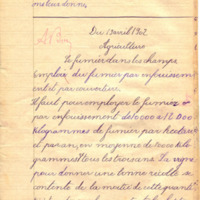 Du 13 avril 1902
Agriculture
Le fumier dans les champs
Emploi du fumier par enfouissem
ent et par couverture.
Il faut pour employer le fumier
par enfouissement de 10000 à 12 000
kilogrammes de fumier par hectare
et par an, en moyenne de 30000 kilo
grammes tous les trois ans. La vigne
pour donner une bonne récolte se
contente de la moitié de cette quanti